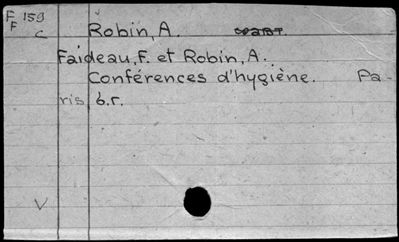 F 159 Robin, A.
F
C
Faideau, F. et Robin, A.
Conférences d'hygiène. Pa-
ris, б.г.
V